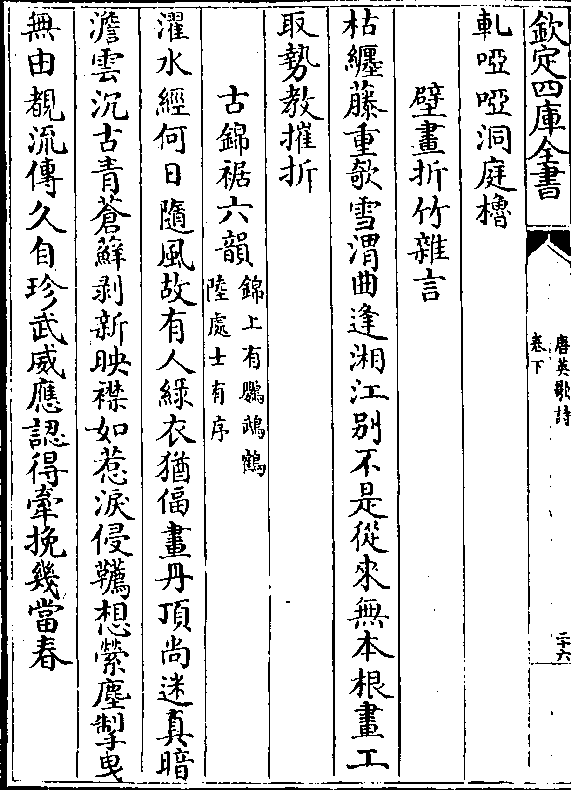 欽定四庫全書
唐英歌詩
卷下
二十六
軋啞啞洞庭櫓
壁畫折竹雜言
枯纏藤重欹雪渭曲逢湘江别不是從來無本根畫工
取勢教摧折
古錦裾六韻
錦上有鸚鵡鶴
陸處士有序
濯水經何日隨風故有人綠衣猶偪畫丹頂尚迷真暗
澹雲沉古青蒼蘚剥新映襟如惹淚侵韈想縈塵掣曳
無由覩流傳久自珍武威應認得牽挽幾當春